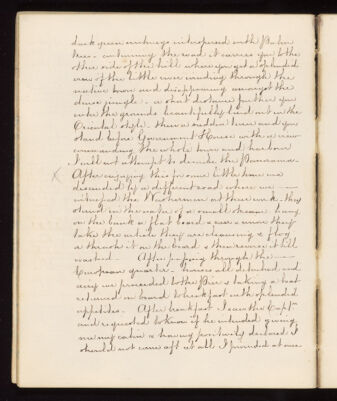 dark green interspersed with Palm
trees - continuing the road it carries you to the
other side of the hill where you get a splendid
view of the little river winding through the
native town and disappearing amongst the
dense jungle - a short distance further you
enter the grounds beautifully laid out in the
Oriental style - then a sudden turn and you
stand before Government House with a view
commanding the whole town and harbour
I will not attempt to describe the Panorama -
After enjoying this for some little time we
descended by a different road where we
witnessed the Washermen at their work - they
stand in the water of a small stream having
on the bank a flat board & as
take the article they are cleansing & flog
& thrash it on the board & then rinse it till
washed - After passing through the
European quarter - houses all detached and
we proceeded to the Pier & taking a boat
returned on board to breakfast with splendid
appetites - After breakfast I saw the Capt<sup>n</sup>
and requested to know if he intended giving
me my cabin & having positively declared I
should not come aft at all I proceeded at once